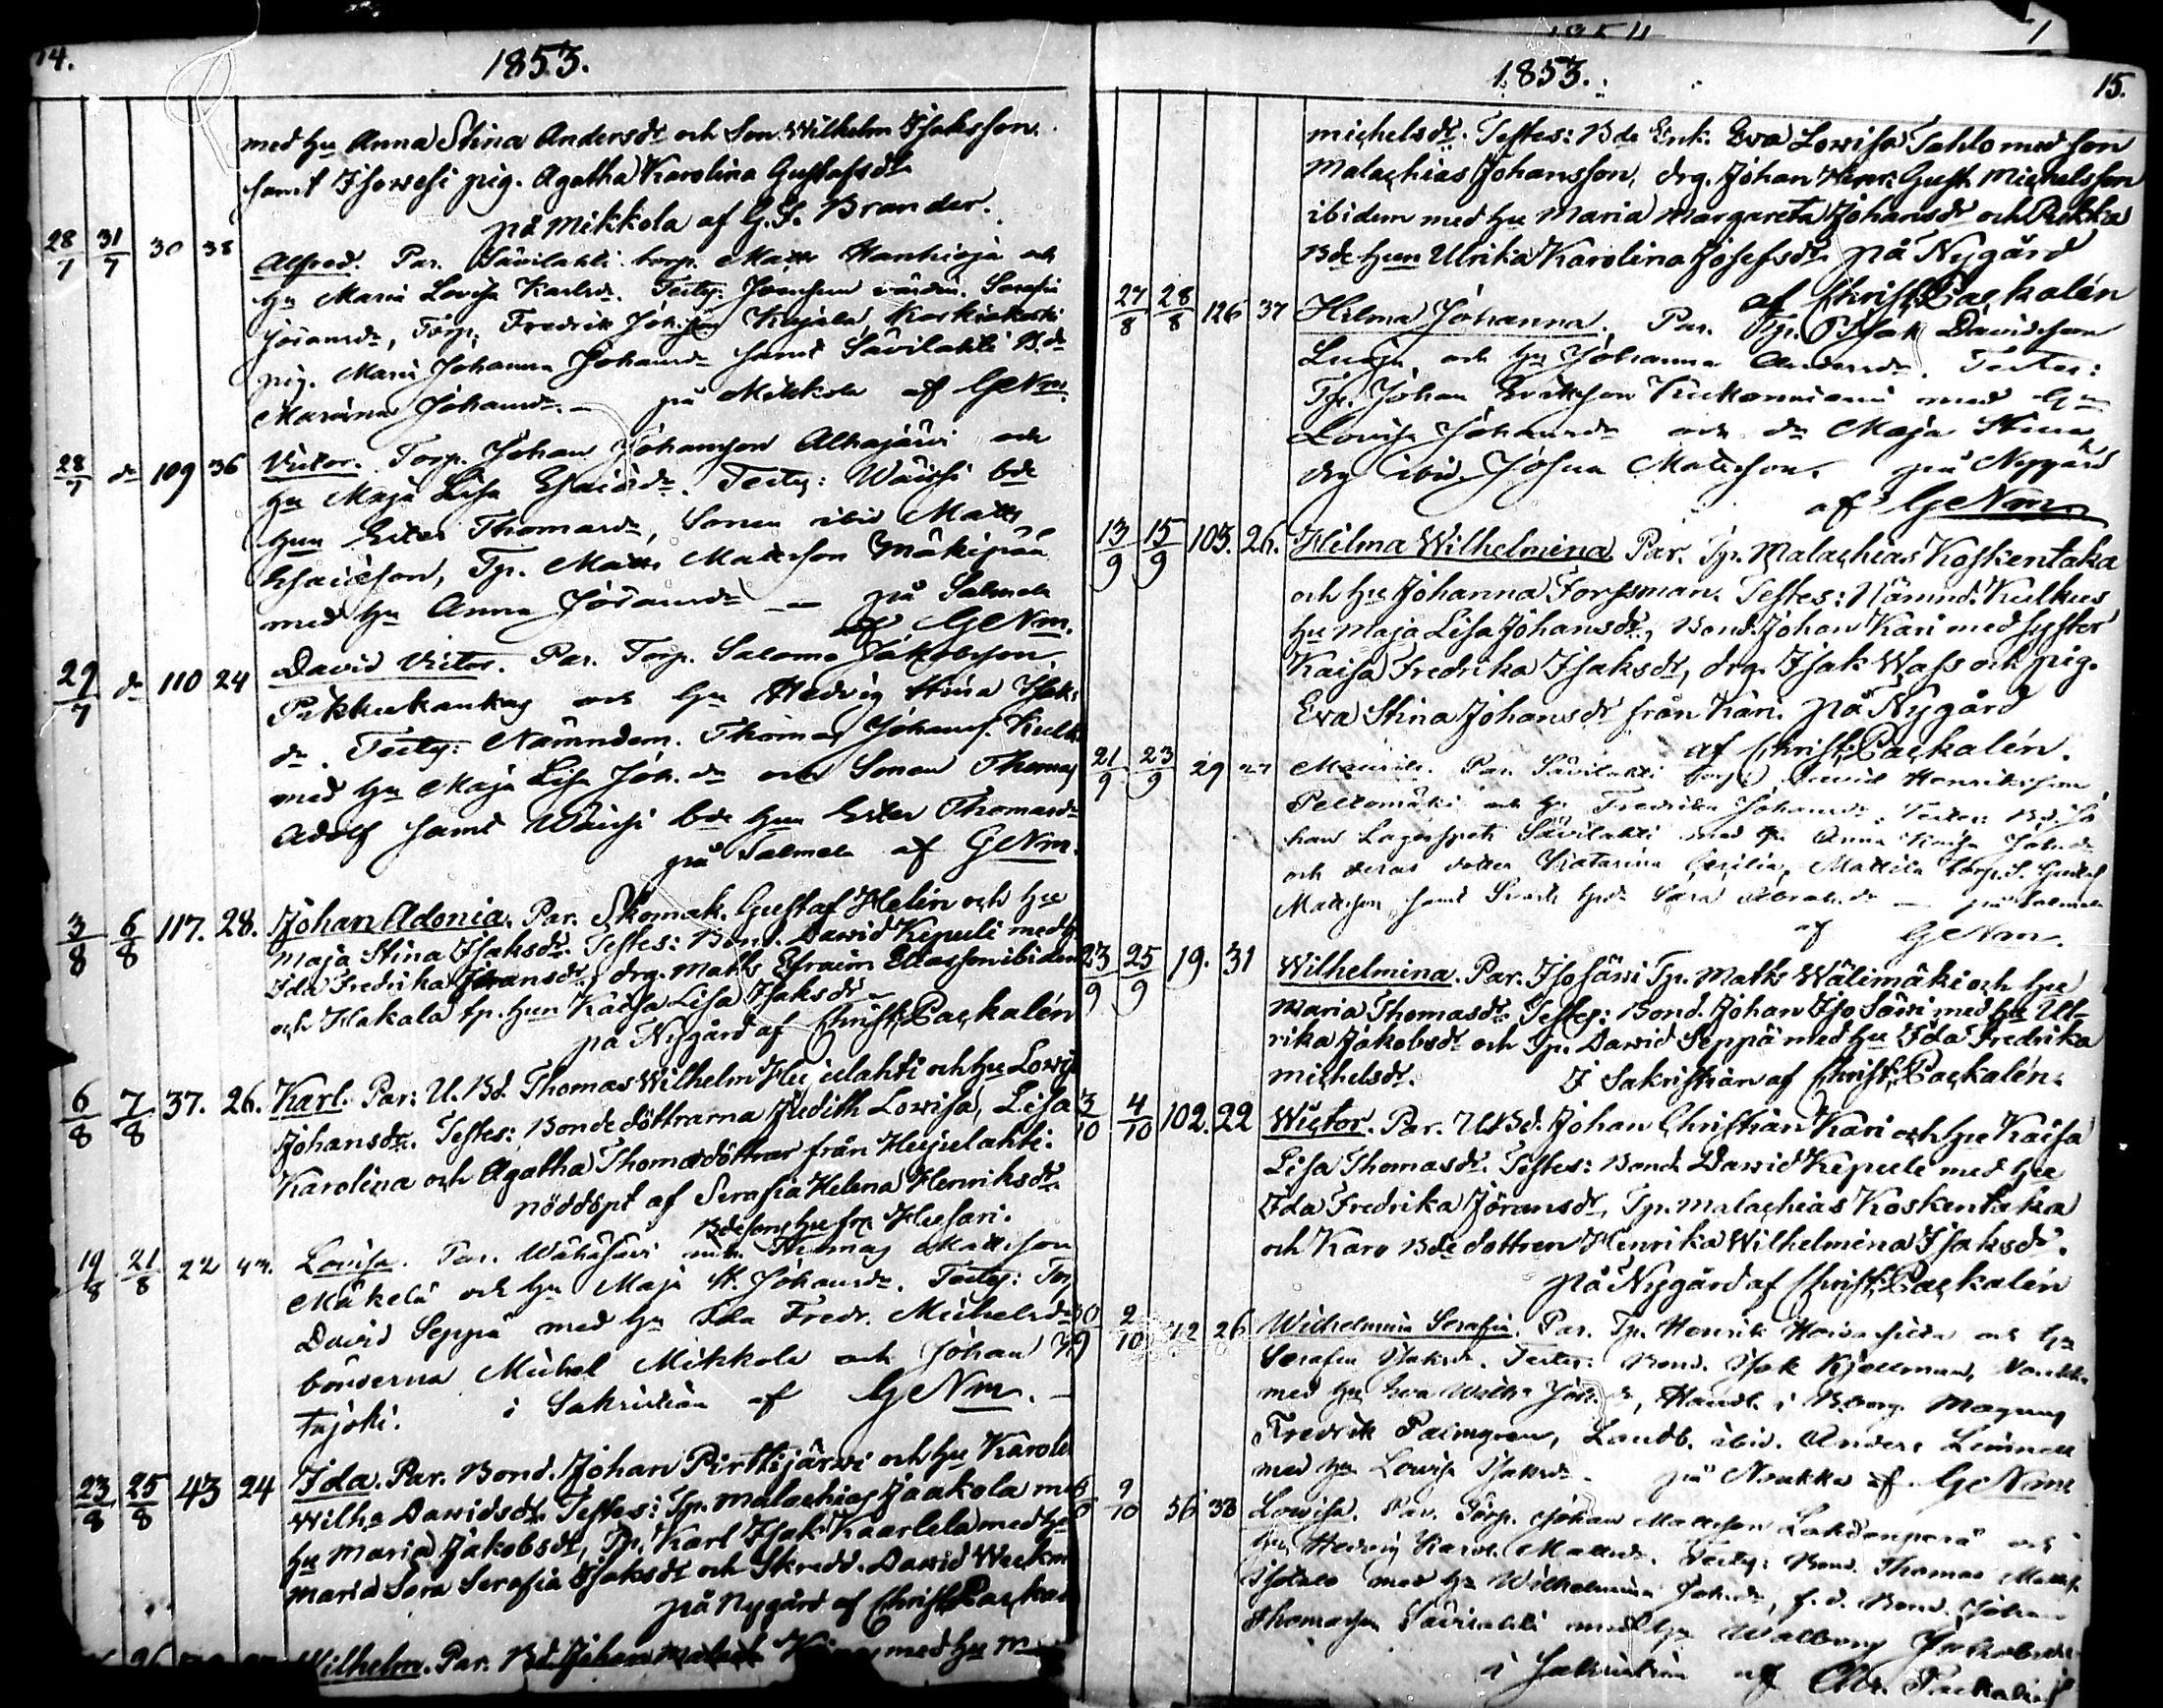 14.
1853.
med hu Anna Stina Andersdr och Son Wilhelm Isaksson
samt Isowesi pig. Agatha Karolina Gustafsdr
på Mikkola af G. S. Brander.
28/7 31/7 30 38 Alfred. Par. Sävilahti torp. Matts Hanhioja och
hu Maria Lovisa Karlsdr. Testes: värdin. Serafia
Göransdr, Torp. Fredrik Johsson Kujala, Koskiokoski
pig. Maria Johanna Johansdr samt Sävilahti B.dr
Mariana Johansdr. – på Mikkola af GeNm.
28/7 do 109 36 Victor. Torp. Johan Johansson Alhajärvi och
hu Maja Lisa Esaiædr. Testes: Wäissi bde
hun Ester Thomasdr, Sonen ibid Matts
Esaiæson, Tp. Matts Mattsson Mäkipää
med hu Anna Göransdr — på Salmela
af GeNm.
29/7 do 110 24 David Victor. Par. Torp. Salomo Jakobsson
Pikkukankas och hu Hedvig Stina Isaks
dr. Testes: Nämndem. Thomas Johans. Kulk
med hu Maja Lisa Joh.dr och Sonen Thomas
Adolf samt Wäissi bde hun Ester Thomasdr
på Salmela af GeNm.
3/8 6/8 117. 28. Johan Adonia. Par. Skomak. Gustaf Helin och hu
Maja Stina Isaksdr. Testes: Bond. Dawid Kepuli med h
Ida Fredrika Göransdr, drg. Matts Efraim Eliasson ibidem
och Hakala tp. hun Kaisa Lisa Isaksdr –
på Nygård af Christ. Packalén
6/8 7/8 37. 26. Karl. Par: U. Bd. Thomas Wilhelm Hujulahti och hu Lowis
Johansdr. Testes: Bondedöttrarna Judith Lowisa, Lisa
Karolina och Agatha Thomasdöttrar från Hujulahti.
nöddöpt af Serafia Helena Henriksdr
Bdesons hu frn Huhtari.
19/8 21/8 22 43. Lovisa. Par. Wähäsävi Thomas Mattsson
Mäkelä och hu Maja St. Johansdr. Testes: Torp
David Seppä med hu Ida Fredr. Michelsdr
bönderna Michel Mikkola och Johan
tajoki. i Sakristian af GeNm. –
23/8 25/8 43 24 Ida. Par. Bond. Johan Pirttijärwi och hu Karoli
Wilha Dawidsdr. Testes: Tp. Malachias Jaakola med
hu Maria Jakobsdr, Tp. Karl Isak Kaarlela med hu
Maria Sora Serafia Isaksdr och Skredd. Dawid Weckm
på Nygård af Christ. Packa
Wilhelm. Par. Bd. Johan med hu M
1853.
15.
Michelsdr. Testes: Bde Enk. Eva Lowisa Tahlo med son
Malachias Johansson, drg. Johan Henr. Gust. Michelsson
ibidem med hu Maria Margareta Johansdr och Pukka
Bde hun Ulrika Karolina Josefsdr på Nygård
af Christ. Packalén
27/8 28/8 126 37 Hilma Johanna. Par. Tp. Isak Davidsson
Luoja och hu Johanna Andersdr. Testes:
Tp. Johan Eriksson Kukonniemi med hu
Lovisa Johansdr och dr Maja Stina
drg ibid. Josua Mattsson. på Nygård
af GeNm
13/9 15/9 105. 26. Hilma Wilhelmina. Par. Tp. Malachias Koskentaka
och hu Johanna Forssman. Testes: Nämnd. Kulkus
hu Maja Lisa Johansdr, Bond. Johan Kari med syster
Kaisa Fredrika Isaksdr, drg. Isak Wass och pig.
Eva Stina Johansdr från Kari. på Nygård
af Christ. Packalén.
21/9 23/9 29 27 Mauritz. Par. Sävilahti torp. David Henriksson
Peltomäki och hu Fredrika Johansdr. Testes: Bd. Jo
han Lagerspets Sävilahti med hu Anna Kaisa Johsdr
och deras dotter Katarina Cecilia, Mattila torp. S. Gustaf
Mattsson samt hu Sara Abrah.dr — på Salmela
af GeNm.
23/9 25/9 19. 31 Wilhelmina. Par. Isosäwi Tp. Matts Wälimäki och hu
Maria Thomasdr. Testes: Bond. Johan Iso Säwi med hu Ul-
rika Jakobsdr och Tp. Dawid Seppä med hu Ida Fredrika
Michelsdr. I Sakristian af Christ. Packalén.
3/10 4/10 102. 22 Wictor. Par. U. Bd. Johan Christian Kari och hu Kaisa
Lisa Thomasdr. Testes: Bond. Dawid Kepuli med hu
Ida Fredrika Göransdr, Tp. Malachias Koskentaka
och Karo Bdedottren Henrika Wilhelmina Isaksdr.
på Nygård af Christ. Packalén
30/9 2/10 12 26 Wilhelmina Serafia. Par. Tp. Henrik och hu
Serafia Isaksdr. Testes: Bond. Isak Kjellman, Noukka
med hu Eva Wilha Joh.dr, Handl. i Björneb. Magnus
Fredrik Palmgren, Landb. ibid. Anders Linnell
med hu Lovisa Isaksdr – på Noukka af GeNm
9/10 56 33 Lovisa. Par. Torp. Johan Mattsson Lahdenperä och
hu Hedvig Karol. Mattsdr. Testes: Bond. Thomas Matts.
Isotalo med hu Wilhelmina Johsdr, f.d. Bond. Johan
Thomasson Sävilahti med hu Walborg Jakobsdr
i Sakristian af Chr. Packalén